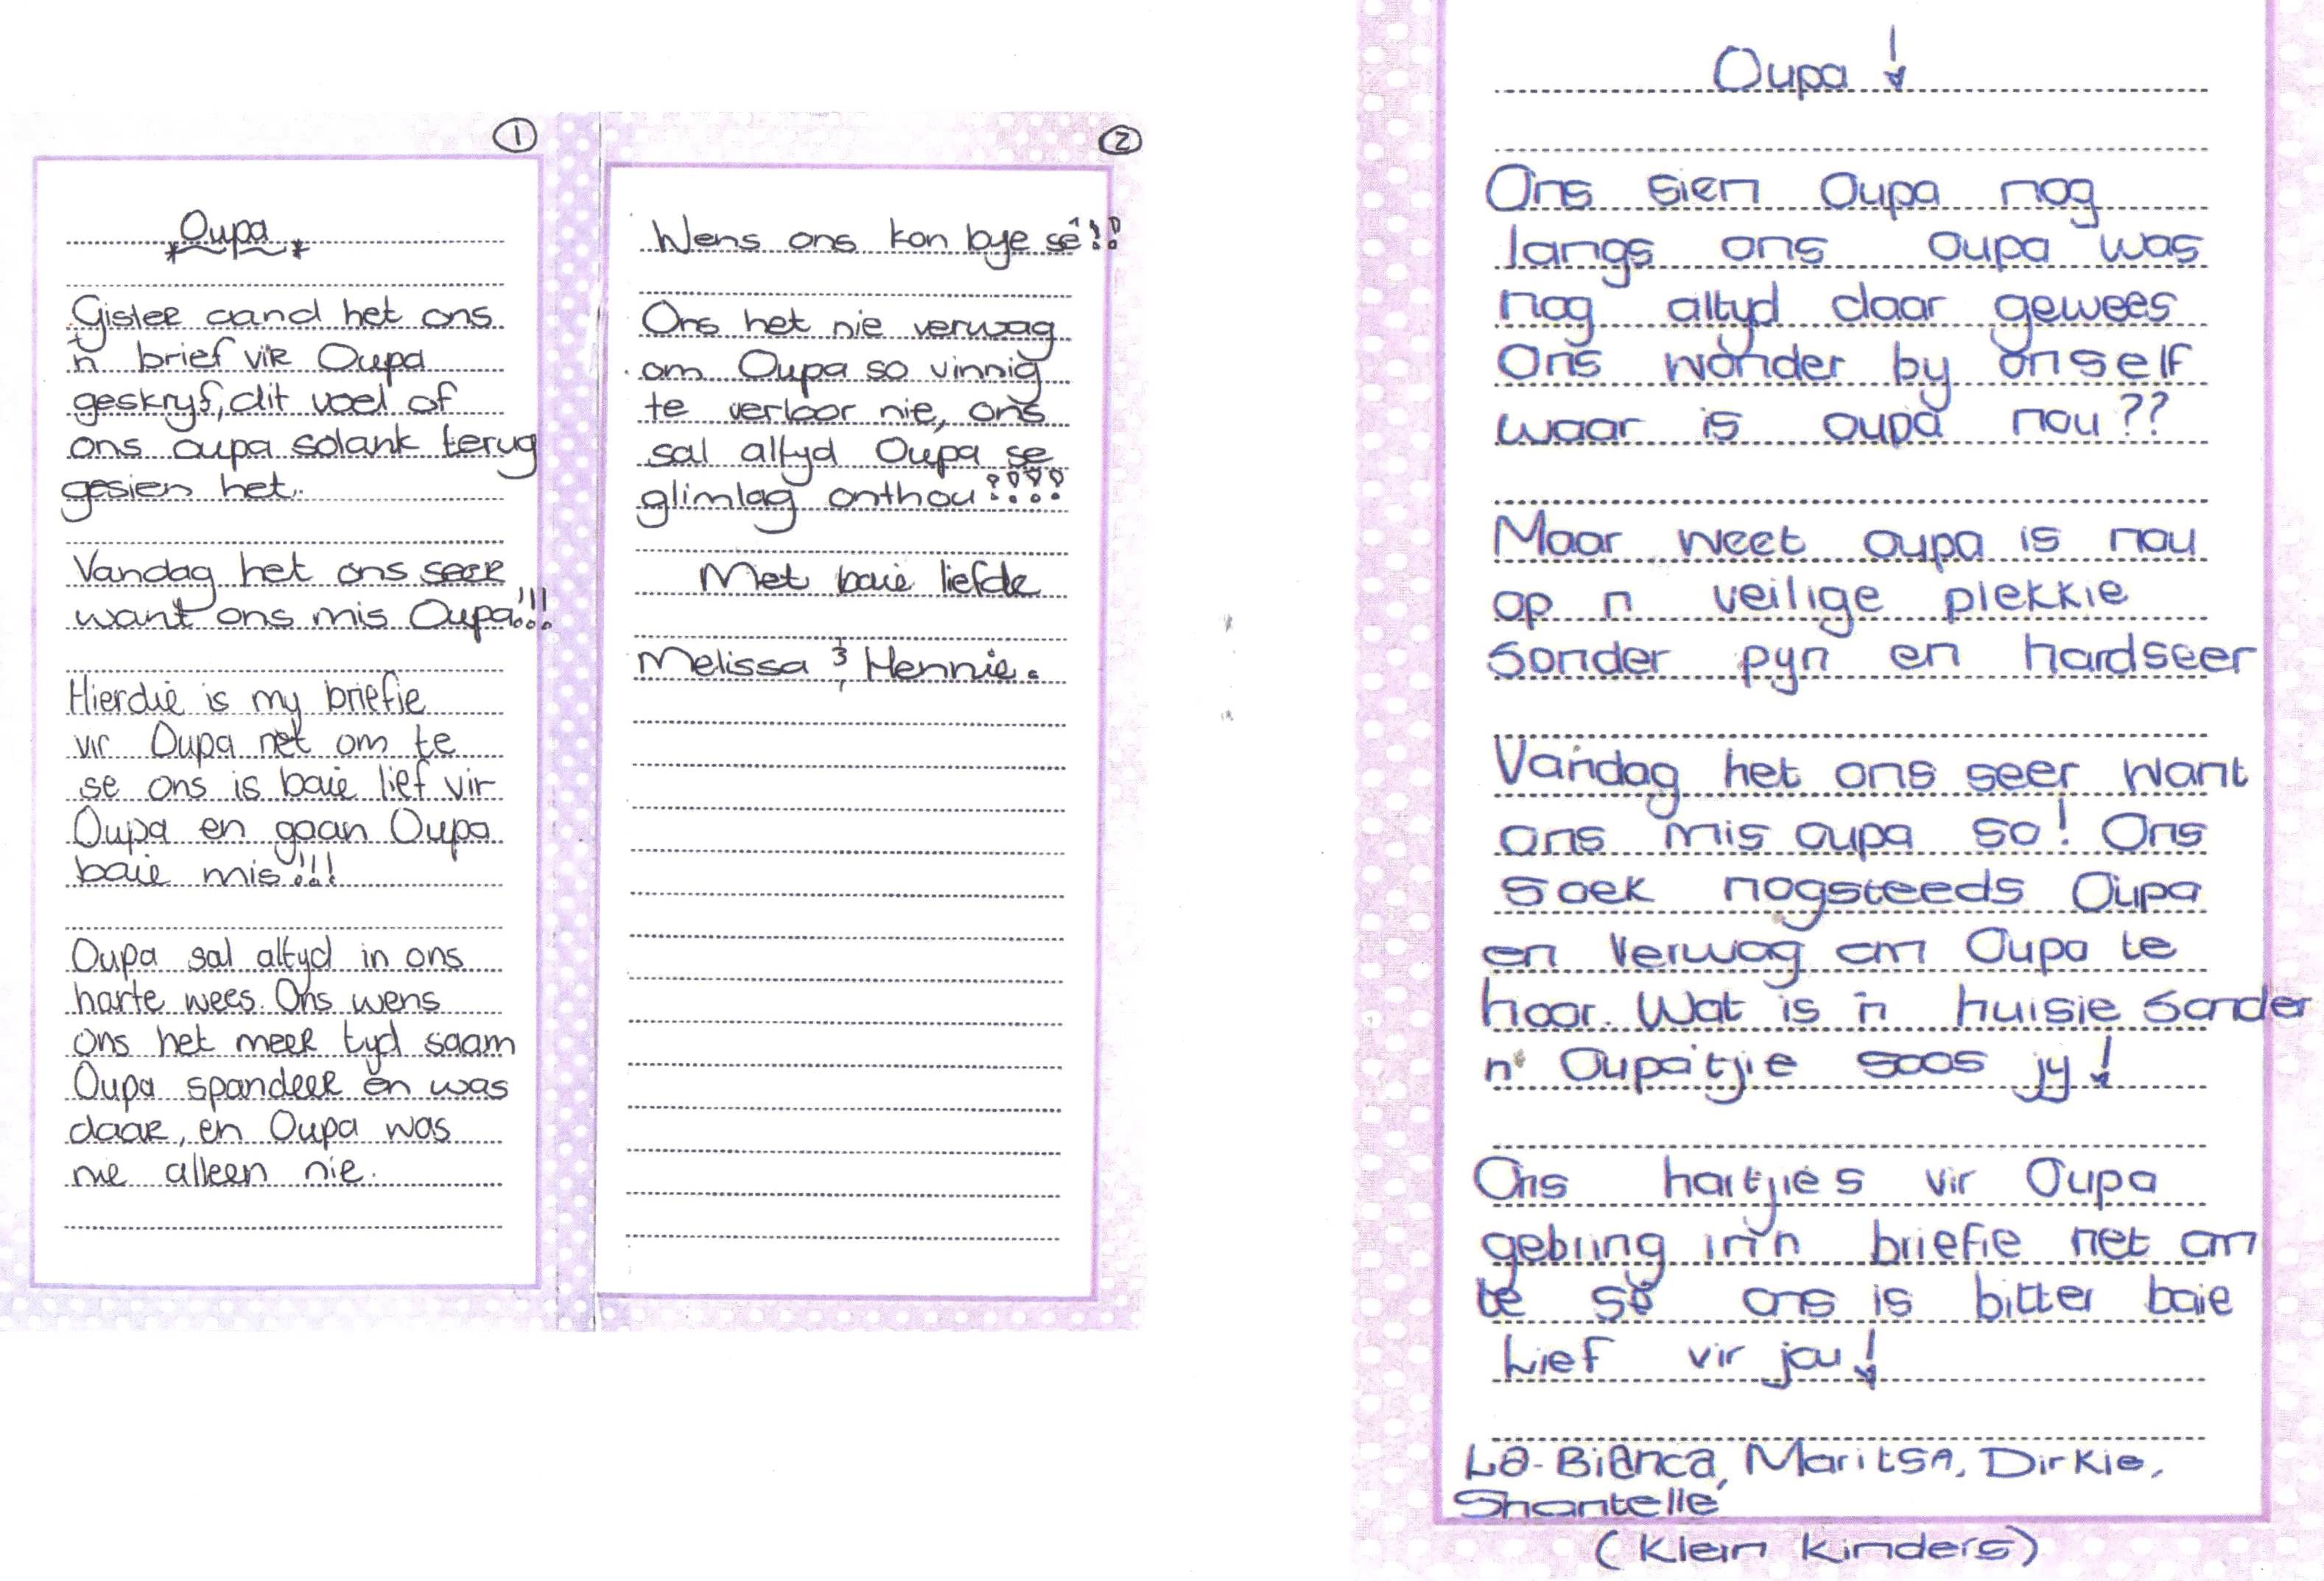 ①
Oupa
Gister aand het ons
'n brief vir Oupa
geskryf, dit voel of
ons oupa solank terug
gesien het.
Vandag het ons seer
want ons mis Oupa!!!
Hierdie is my briefie
vir Oupa net om te
se ons is baie lief vir
Oupa en gaan Oupa
baie mis!!!
Oupa sal altyd in ons
harte wees. Ons wens
ons het meer tyd saam
Oupa spandeer en was
daar, en Oupa was
nie alleen nie.
②
Wens ons kon bye sê!!
Ons het nie verwag
om Oupa so vinnig
te verloor nie, ons
sal altyd Oupa se
glimlag onthou!!!!
Met baie liefde
Melissa & Hennie.
Oupa!
Ons sien Oupa nog
langs ons oupa was
nog altyd daar gewees
Ons wonder by onself
waar is oupa nou??
Maar weet oupa is nou
op n veilige plekkie
Sonder pyn en hardseer
Vandag het ons seer want
ons mis oupa so! Ons
soek nogsteeds Oupa
en verwag om Oupa te
hoor. Wat is 'n huisie sonder
n' Oupa'tjie soos jy!
Ons hartjies vir Oupa
gebring in 'n briefie net om
te sê ons is bitter baie
Lief vir jou!
La-Bianca, Maritsa, Dirkie,
Shantelle'
(Klein Kinders)